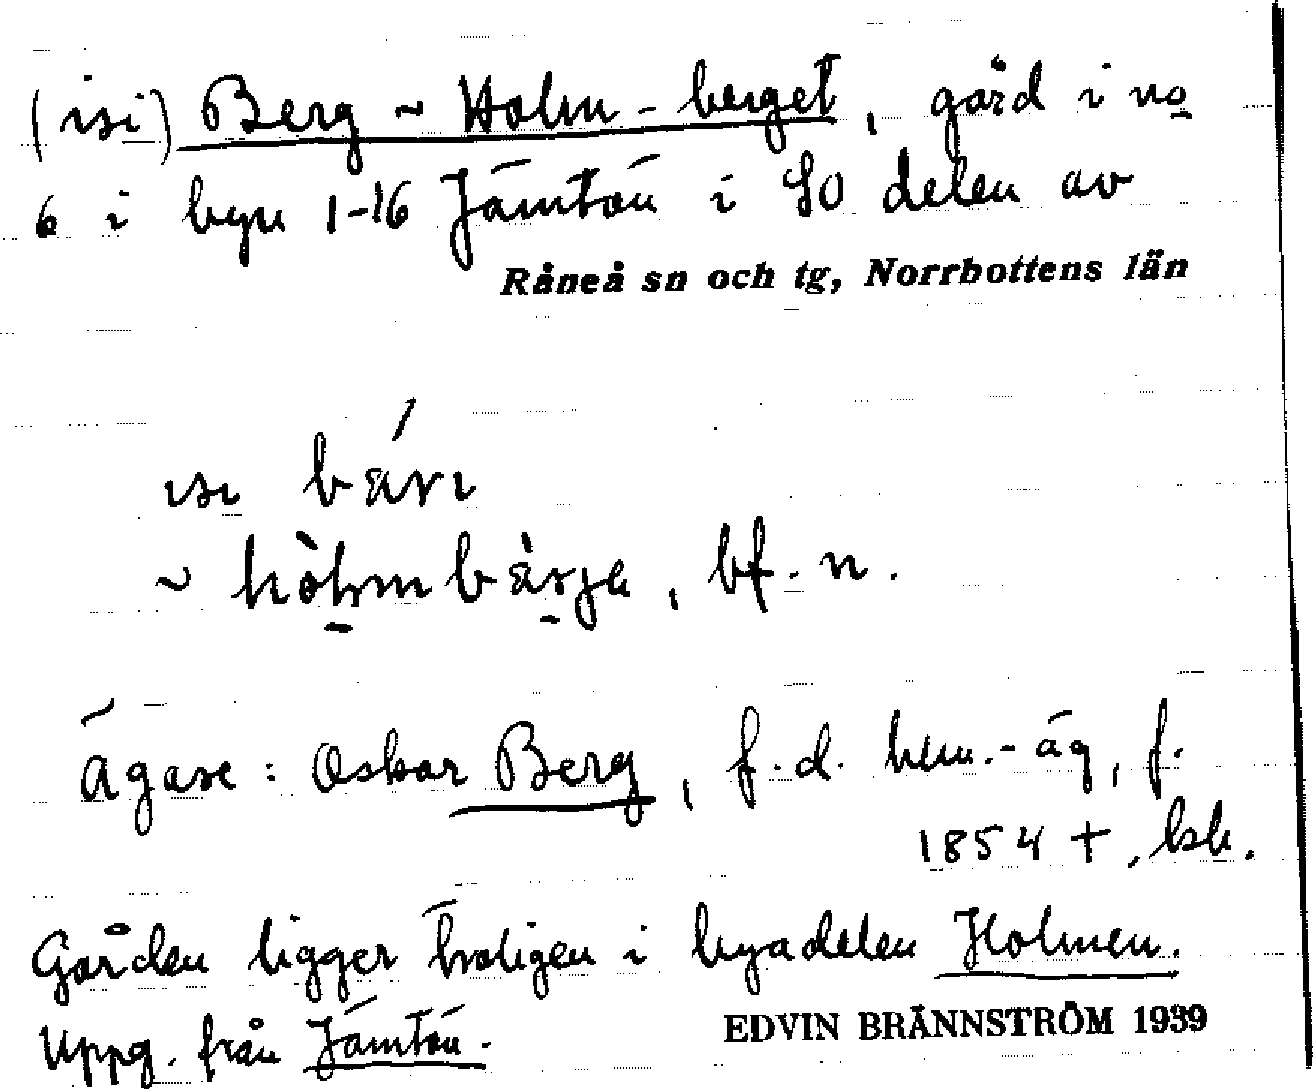 (isi) Berg ~ Holm-berget, gård i no
6 i byn 1-16 Jämtön i SO delen av
Råneå sn och tg, Norrbottens län
ɩsɩ
~ , bf. n.
Ägare: Oskar Berg, f.d. hem.-äg, f.
1854 +, bsk.
Gården ligger troligen i byadelen Holmen.
Uppg. från Jämtön.
EDVIN BRÄNNSTRÖM 1939